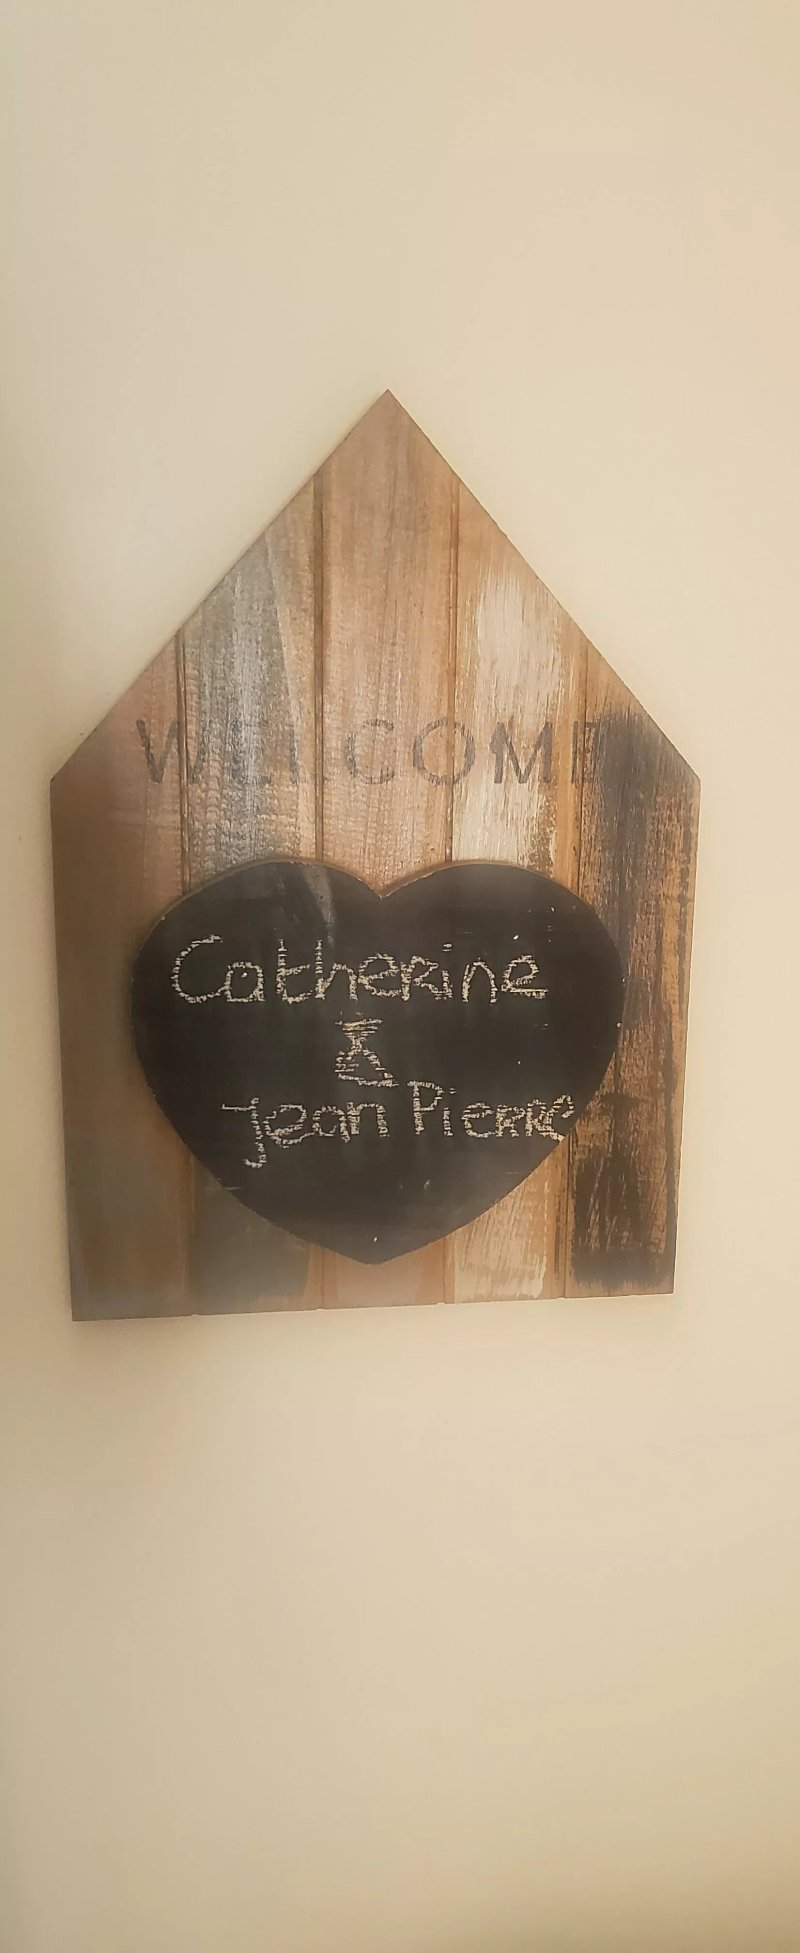 WELCOME
Catherine
&
Jean Pierre